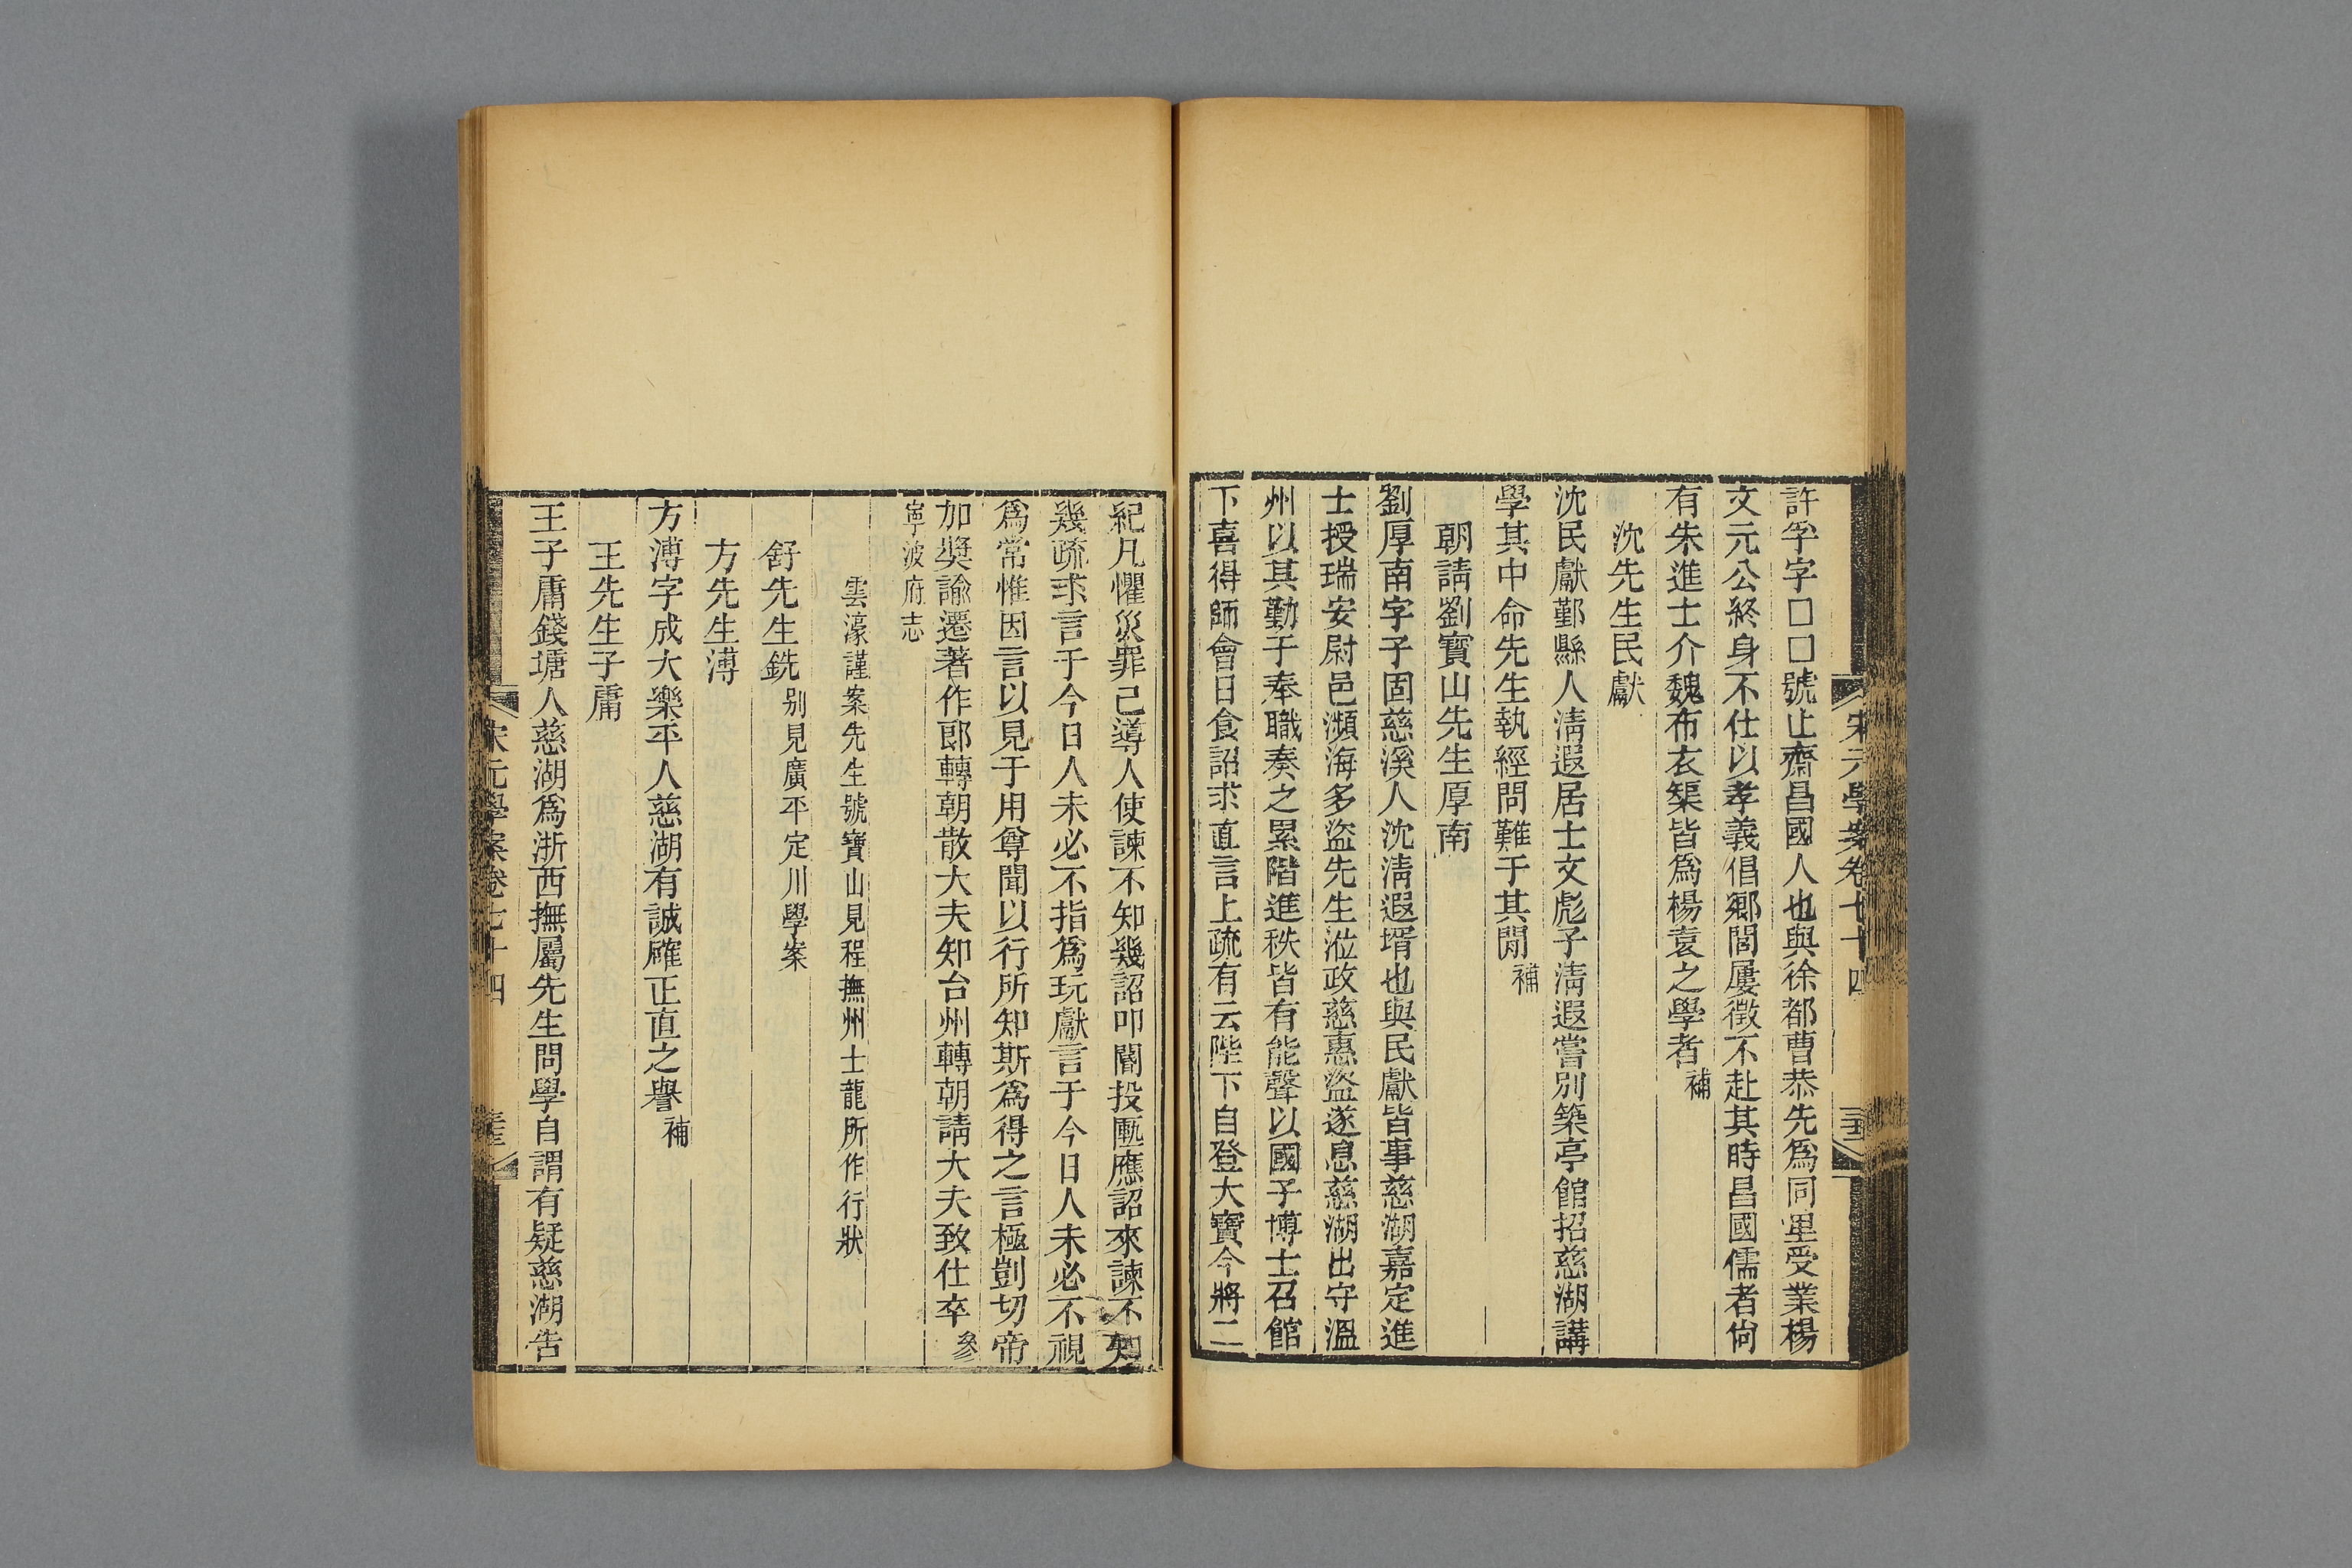 宋元學案卷七十四
許孚字□□號止齋昌國人也與徐都曹恭先爲同里受業楊
文元公終身不仕以孝義倡鄉閭屢徵不赴其時昌國儒者尙
有朱進士介魏布衣榘皆爲楊袁之學者補
沈先生民獻
沈民獻鄞縣人淸遐居士文彪子淸遐嘗別築亭館招慈湖講
學其中命先生執經問難于其閒補
朝請劉寶山先生厚南
劉厚南字子固慈溪人沈淸遐壻也與民獻皆事慈湖嘉定進
士授瑞安尉邑瀕海多盜先生涖政慈惠盜遂息慈湖出守溫
州以其勤于奉職奏之累階進秩皆有能聲以國子博士召館
下喜得師會日食詔求直言上疏有云陛下自登大寶今將二
紀凡懼災罪己導人使諫不知幾詔叩閽投匭應詔來諫不知
幾疏求言于今日人未必不指爲玩獻言于今日人未必不視
爲常惟因言以見于用尊聞以行所知斯爲得之言極剴切帝
加獎諭遷著作郎轉朝散大夫知台州轉朝請大夫致仕卒參
寧波府志
雲濠謹案先生號寶山見程撫州士龍所作行狀
舒先生銑別見廣平定川學案
方先生溥
方溥字成大樂平人慈湖有誠確正直之譽補
王先生子庸
王子庸錢塘人慈湖爲浙西撫屬先生問學自謂有疑慈湖告
宋元學案卷七十四